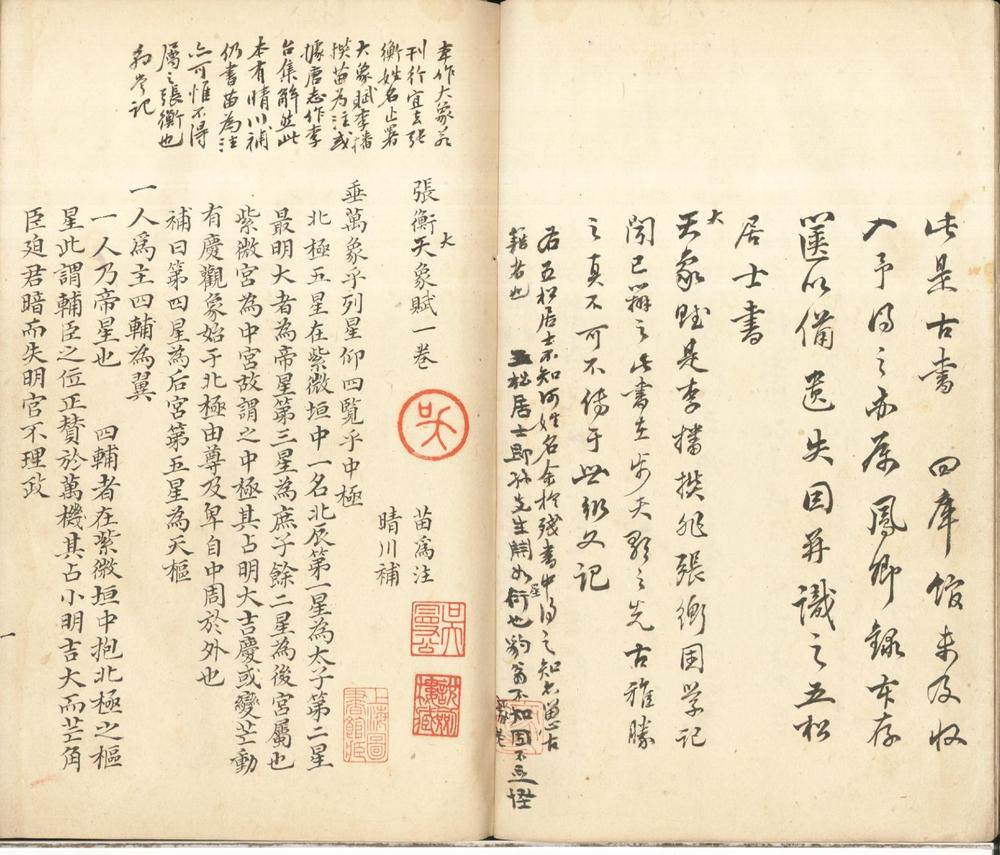 此是古書 四庫館未及收
入予得之亦屬鳳卿錄本存
篋以備遺失因并識之五松
居士書
大
天象賦是李播撰非張衡困學記
聞已辯之此書在步天歌之先古雅勝
之真不可不傳于世級又記
右五松居士不知何姓名余於殘書中得之知亦留心古
籍者也
五松居士即孫先生淵如星衍也豹翁不知固不足怪
本作大象若
刊行宜去張
衡姓名止署
大象賦李播
撰苗為注或
據唐志作李
台集解然此
本有晴川補
仍書苗為注
亦可惟不得
屬之張衡也
大
張衡天象賦一卷
苗為注
晴川補
垂萬象乎列星仰四覽乎中極
北極五星在紫微垣中一名北辰第一星為太子第二星
最明大者為帝星第三星為庶子餘二星為後宮屬也
紫微宮為中宮故謂之中極其占明大吉慶或變芒動
有慶觀象始于北極由尊及卑自中周於外也
補曰第四星為后宮第五星為天樞
一人為主四輔為翼
一人乃帝星也 四輔者在紫微垣中抱北極之樞
星此謂輔臣之位正贊於萬機其占小明吉大而芒角
臣廹君暗而失明官不理政
一
上海圖書館藏